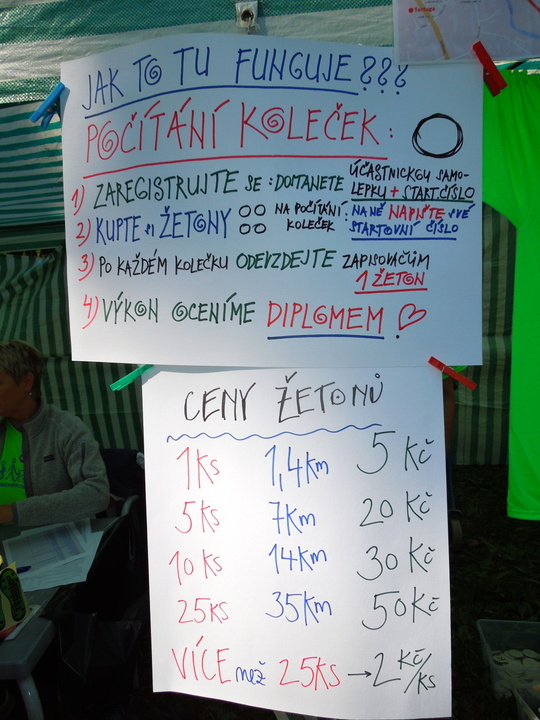 JAK TO TU FUNGUJE???
POČÍTÁNÍ KOLEČEK:
1) ZAREGISTRUJTE SE: DOSTANETE ÚČASTNICKOU SAMO-
LEPKU + START.ČÍSLO
2) KUPTE SI ŽETONY NA POČÍTÁNÍ KOLEČEK: NA NĚ NAPIŠTE SVÉ
STARTOVNÍ ČÍSLO
3) PO KAŽDÉM KOLEČKU ODEVZDEJTE ZAPISOVAČŮM
1 ŽETON
4) VÝKON OCENÍME DIPLOMEM
CENY ŽETONŮ
1ks 1,4km 5 Kč
5ks 7km 20 Kč
10 ks 14km 30 Kč
25ks 35km 50Kč
VÍCE než 25ks → 2 Kč/ks